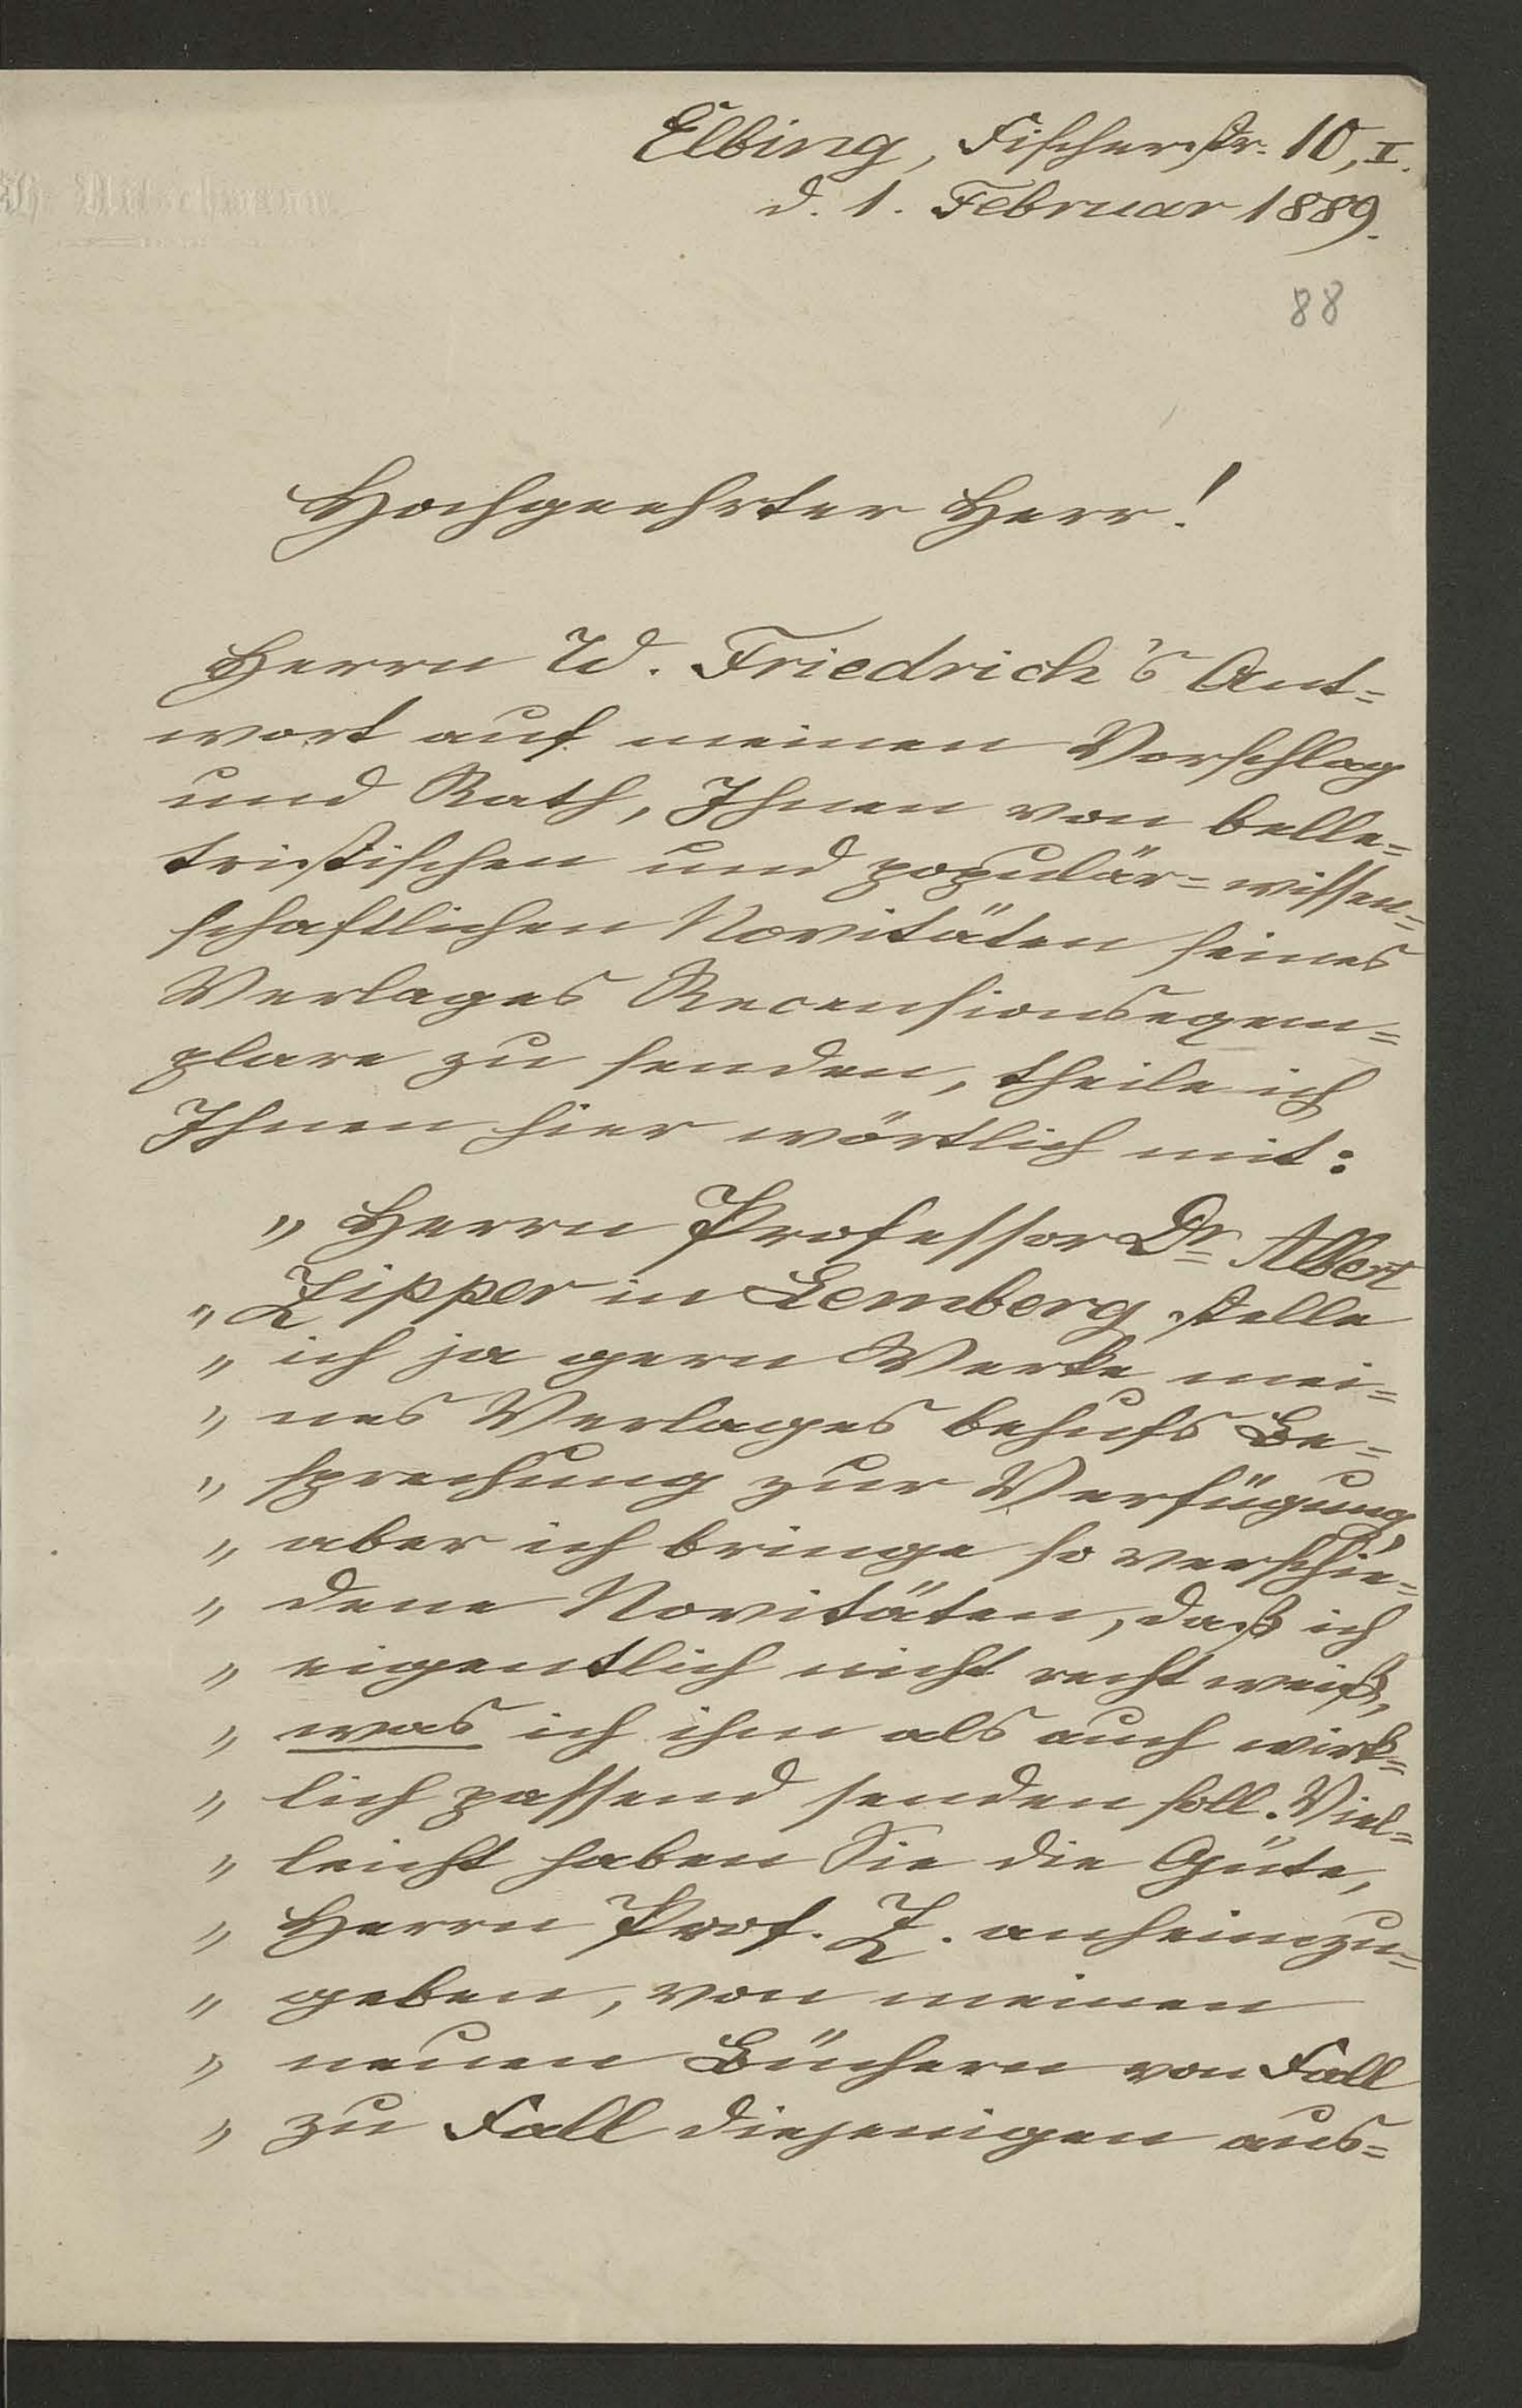 Elbing, Fischerstr. 10, I.
d. 1. Februar 1889.
88
Hochgeehrter Herr!
Herrn W. Friedrich's Ant=
wort auf meinen Vorschlag
und Rath, Ihnen von belle=
tristischen und populär=wissen=
schaftlichen Novitäten seines
Verlages Recensionsexem=
plare zu senden, theile ich
Ihnen hier wörtlich mit:
„Herrn Professor Dr. Albert
„Zipper in Lemberg stelle
„ich ja gern Werke mei=
„nes Verlages behufs Be=
„sprechung zur Verfügung,
„aber ich bringe so verschie=
„dene Novitäten, daß ich
„eigentlich nicht recht weiß,
„was ich ihm als auch wirk=
„lich passend senden soll. Viel=
„leicht haben Sie die Güte,
„Herrn Prof. Z. anheimzu=
„geben, von meinen
„neuen Büchern von Fall
„zu Fall diejenigen aus=